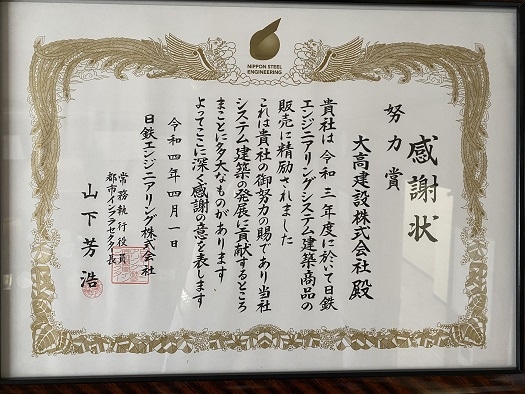 NIPPON STEEL
ENGINEERING
感謝状
努力賞
大高建設株式会社 殿
貴社は令和三年度に於いて日鉄
エンジニアリングシステム建築商品の
販売に精励されました
これは貴社の御努力の賜であり当社
システム建築の発展に貢献するところ
まことに多大なものがあります
よってここに深く感謝の意を表します
令和四年四月一日
日鉄エンジニアリング株式会社
常務執行役員
都市インフラセクター長
山下芳浩